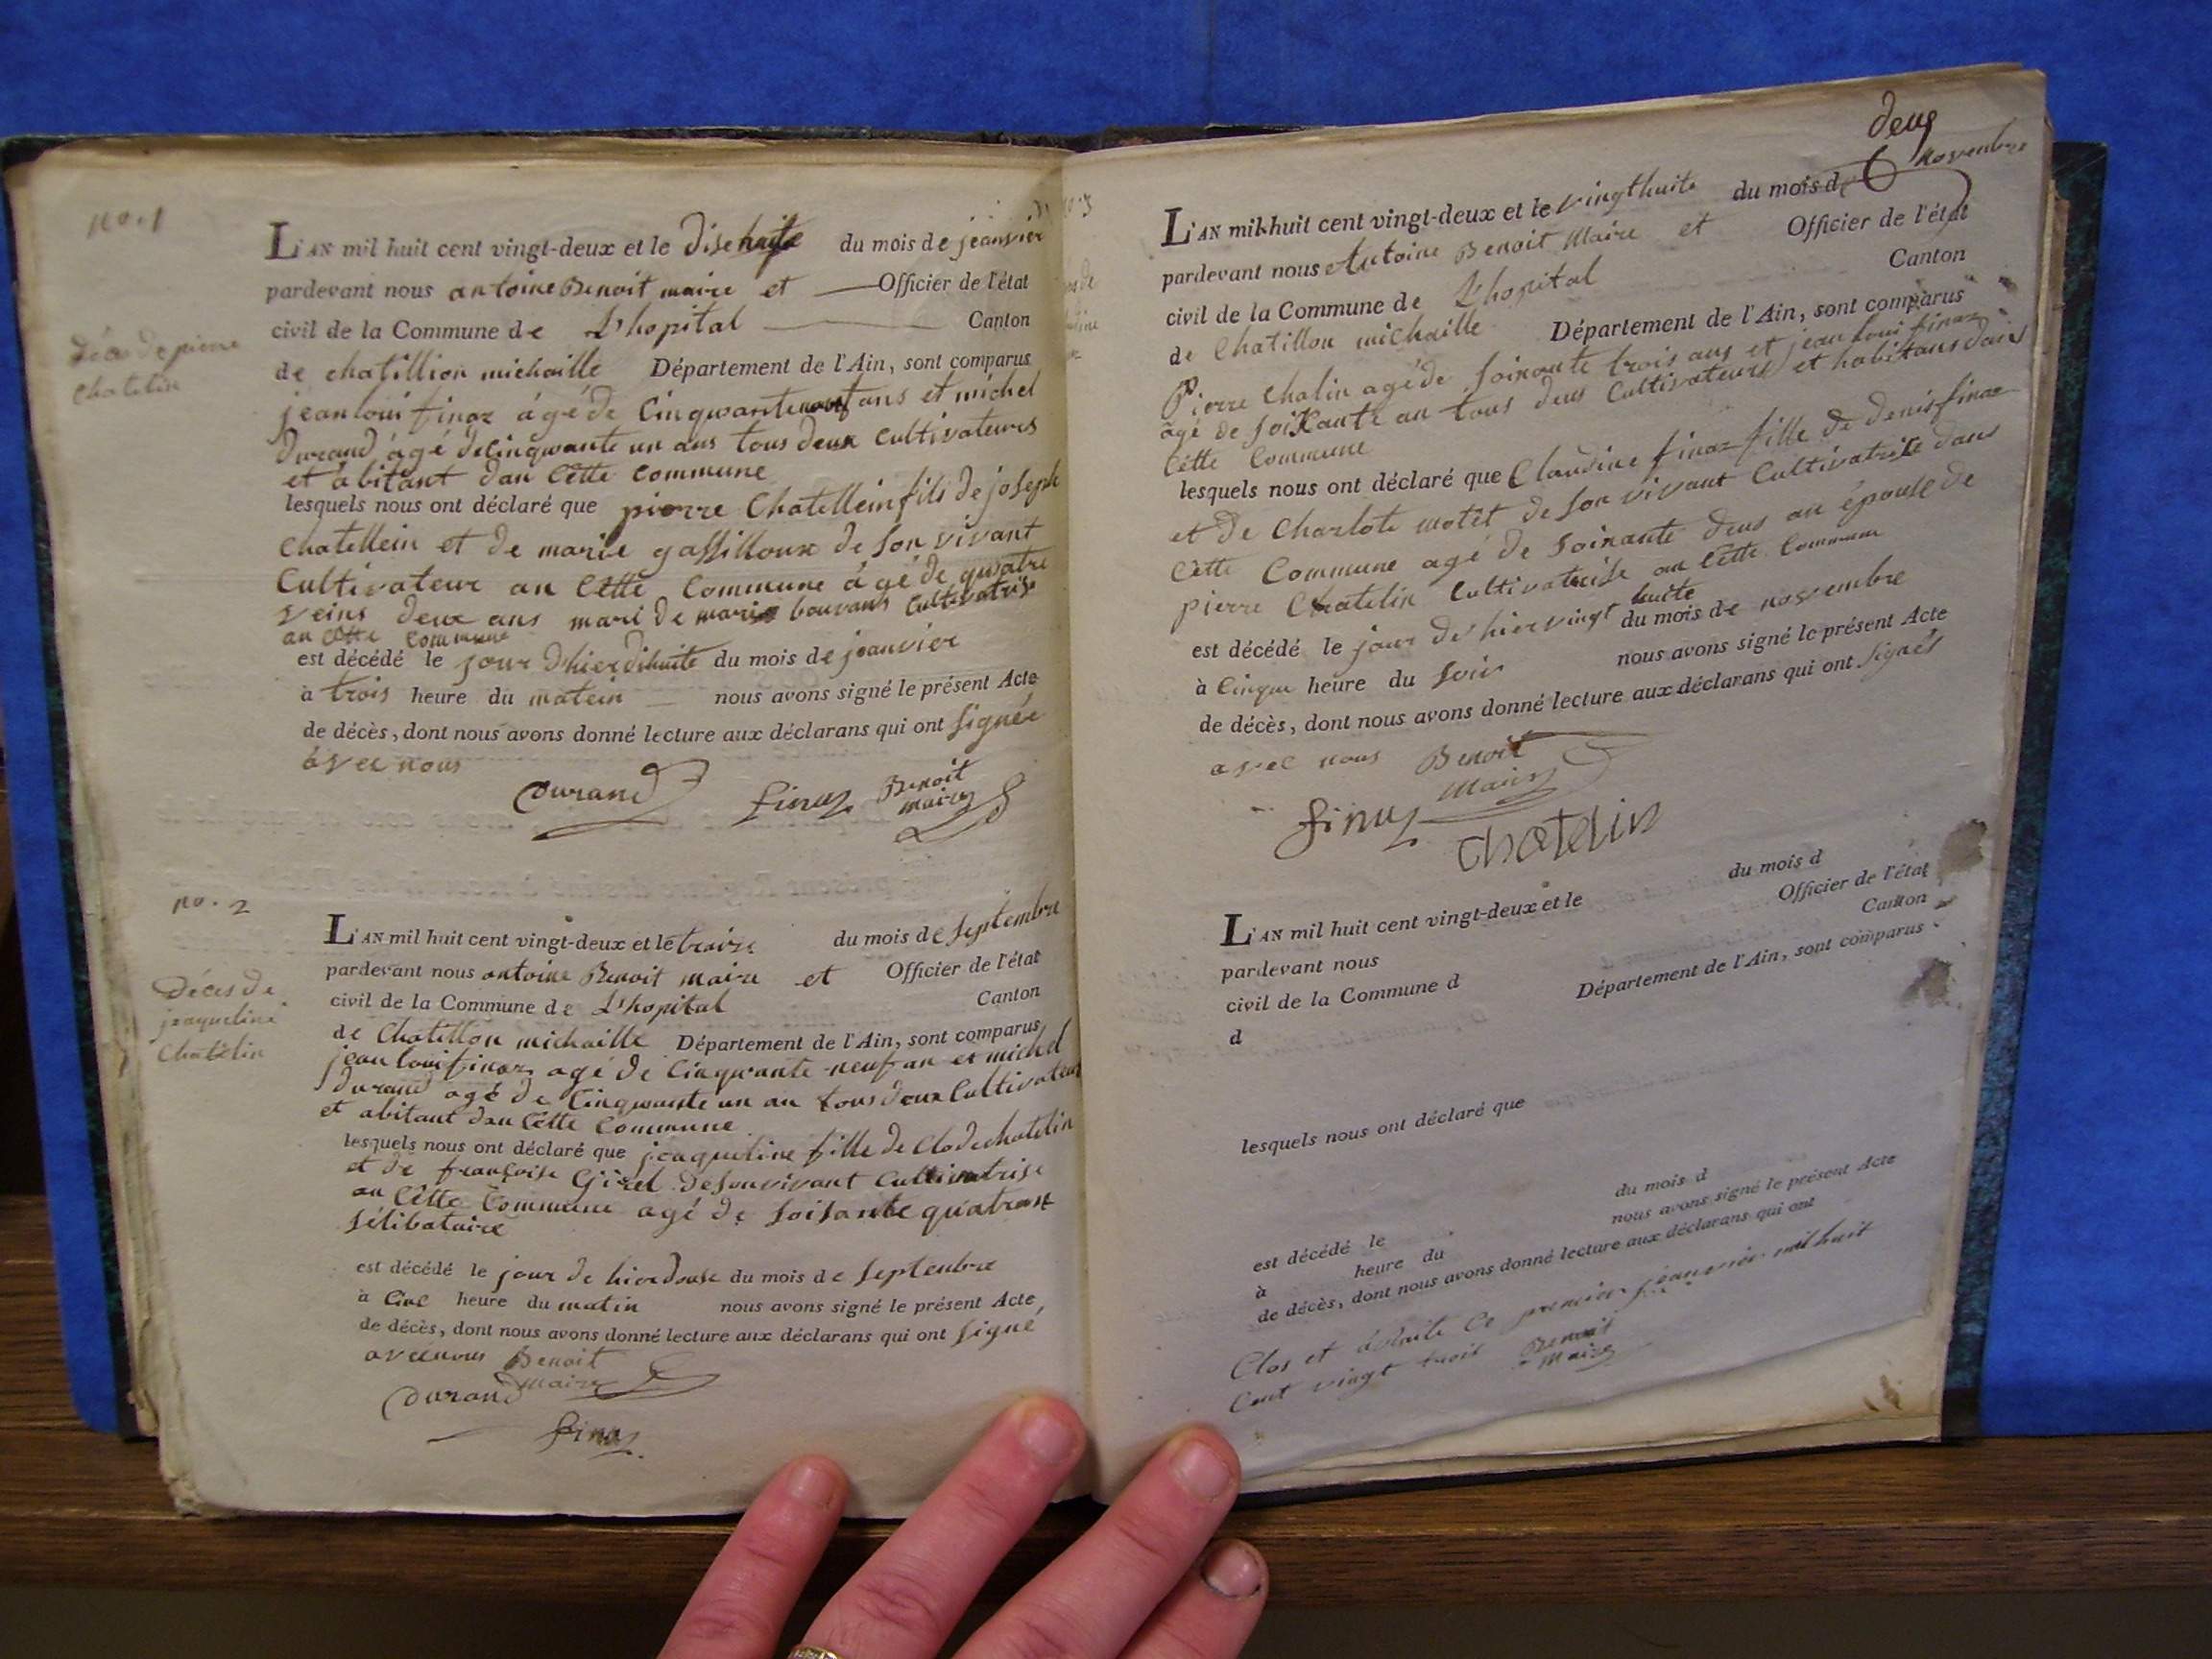 no. 1
Déces de pierre
Chatelin
L'AN mil huit cent vingt-deux et le disehuite du mois de jeanvier
pardevant nous antoine Benoit maire et Officier de l'état
civil de la Commune de L'hopital Canton
de chatillion michaille Département de l'Ain, sont comparus
jean loui finaz âgé de Cinquanteneuf ans et michel
durand âgé de cinquante un ans tous deux cultivateurs
et abitant dan Cette Commune
lesquels nous ont déclaré que pierre Chatellein fils de joseph
Chatellein et de marie gassilloux de son vivant
Cultivateur an Cette Commune âgé de quatre
veins deux ans mari de marie bouvans Cultivatrise
an Cette Commune
est décédé le jour d'hier dihuite du mois de jeanvier
à trois heure du matein nous avons signé le présent Acte
de décès, dont nous avons donné lecture aux déclarans qui ont signée
avec nous
Durand finaz Benoit
maire
no. 2
Déces de
jeaqueline
Chatelin
L'AN mil huit cent vingt-deux et le traize du mois de Septembre
pardevant nous antoine Benoit maire et Officier de l'état
civil de la Commune de L'hopital Canton
de Chatillon michaille Département de l'Ain, sont comparus
jean loui finaz agé de Cinquante neuf an et michel
durand agé de Cinquante un an tous deux Cultivateur
et abitant dan Cette Commune
lesquels nous ont déclaré que jeaqueline fille de Clode chatelin
et de françoise Girel de son vivant Cultivatrise
an Cette Commune agé de soisante quatr ant
sélibataire
est décédé le jour de hier douse du mois de Septenbre
à Cinc heure du matin nous avons signé le présent Acte,
de décès, dont nous avons donné lecture aux déclarans qui ont signé
avec nous Benoit
maire
Durand
finaz
deux
no. 3
L'AN mil huit cent vingt-deux et le vingthuite du mois de novenbre
pardevant nous Antoine Benoit Maire et Officier de l'état
civil de la Commune de L'hopital Canton
de Chatillon michaille Département de l'Ain, sont comparus
Pierre Chalin agé de soixante trois ans et jean loui finaz
agé de soixante an tous deus Cultivateurs et habitans dans
Cette Commune
lesquels nous ont déclaré que Claudine finaz fille de denis finaz
et de Charlote motêt de son vivant Cultivatrise dans
Cette Commune agé de soixante deus an épouse de
pierre Chatelin Cultivatrise an Cette Commune
est décédé le jour de hier vingt huite du mois de novembre
à Cinque heure du soir nous avons signé le présent Acte
de décès, dont nous avons donné lecture aux déclarans qui ont signés
avec nous Benoit
Maire
finaz
Chatelin
L'AN mil huit cent vingt-deux et le du mois d
pardevant nous Officier de l'état
civil de la Commune d Canton
d Département de l'Ain, sont comparus
lesquels nous ont déclaré que
est décédé le du mois d
à heure du nous avons signé le présent Acte
de décès, dont nous avons donné lecture aux déclarans qui ont
Clos et ce premier jeanvier mil huit
Cent vingt trois Benoit
Maire